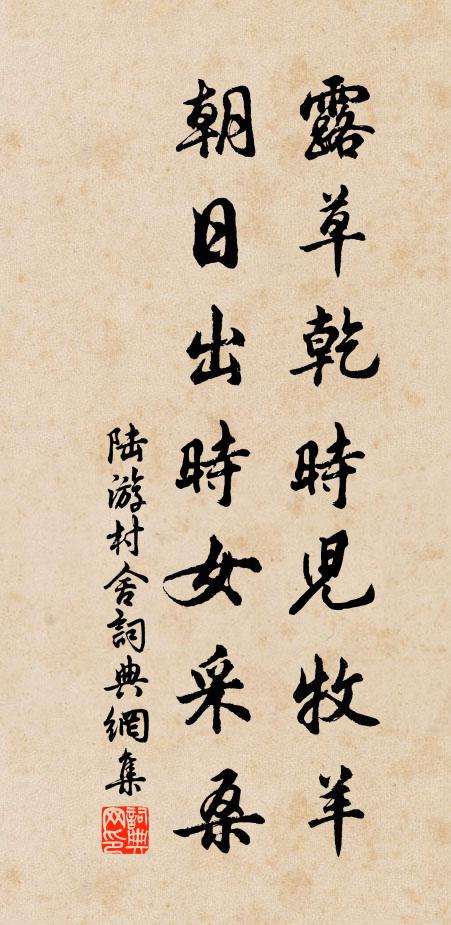 露草乾時兒牧羊
朝日出時女采桑
陆游村舍詞典網集
詞典网印